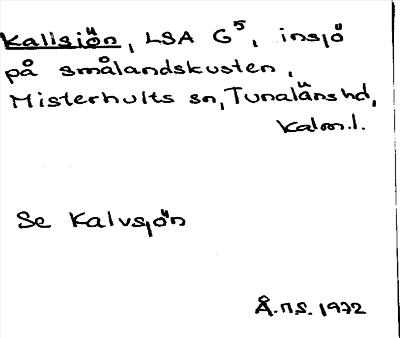 Kallsjön, LSA G5, insjö
på smålandskusten,
Misterhults sn, Tunaläns hd,
Kalm.l.
Se Kalvsjön
Å.M.S. 1972